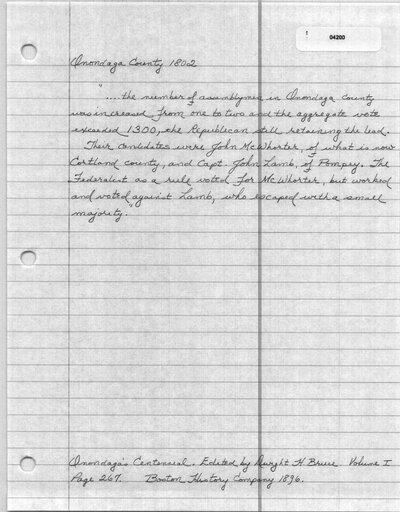 04200
Onondaga County 1802
"....the number of assemblymen in Onondaga County
was increased from one to two and the aggregate vote
exceeded 1300, the Republican still retaining the lead.
Their candidates were John McWhorter, of what is now
Cortland county, and Capt. John Lamb, of Pompey. The
Federalist as a rule voted for McWhorter, but worked
and voted against Lamb, who escaped with a small
majority."
Onondaga's Centennial. Edited by Dwight H Bruce. Volume I
Page 267. Boston History Company 1896.